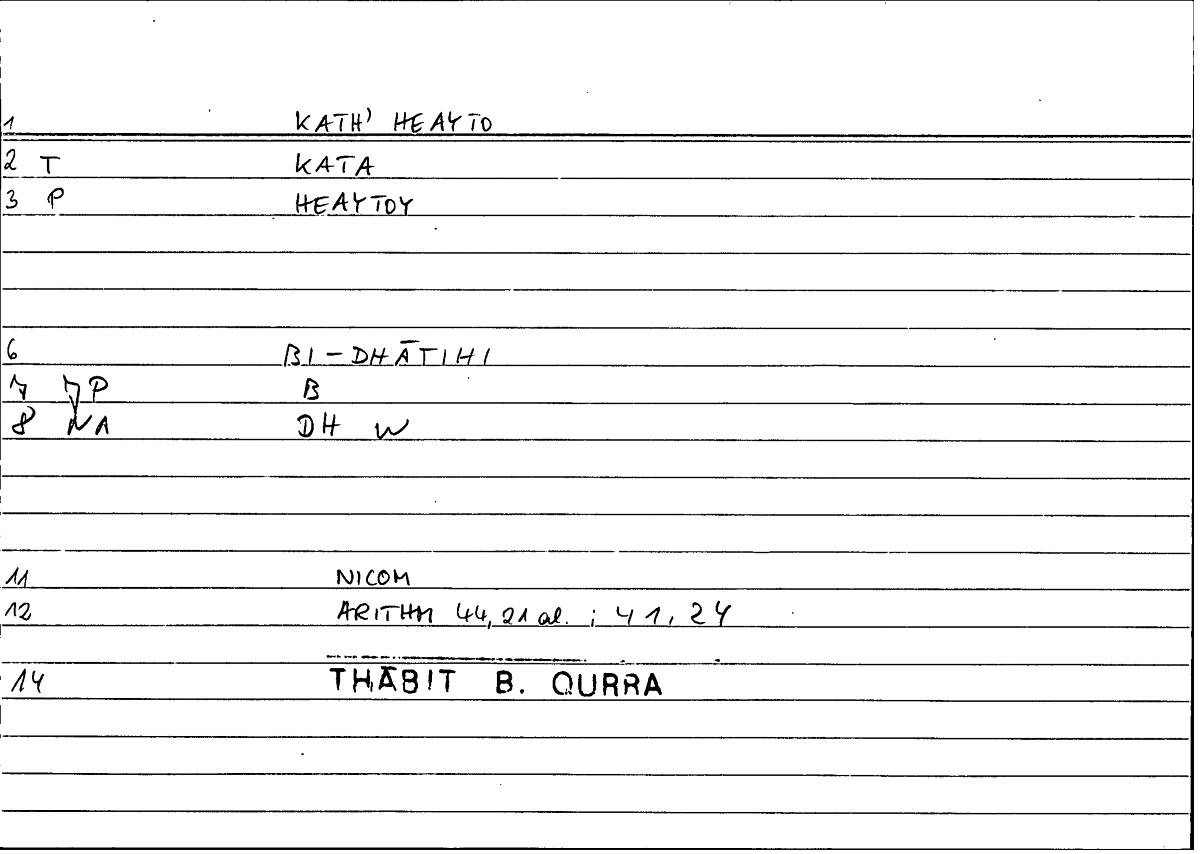 1 KATH' HEAYTO
2 T KATA
3 P HEAYTOY
6 BI-DHĀTIHI
7 7P B
8 NA DH W
11 NICOM
12 ARITHM 44,21 al. ; 41,24
14 THĀBIT B. QURRA